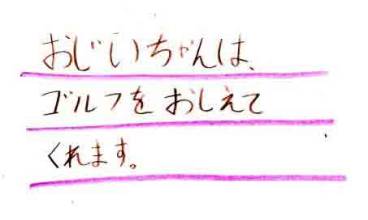 おじいちゃんは、
ゴルフをおしえて
くれます。